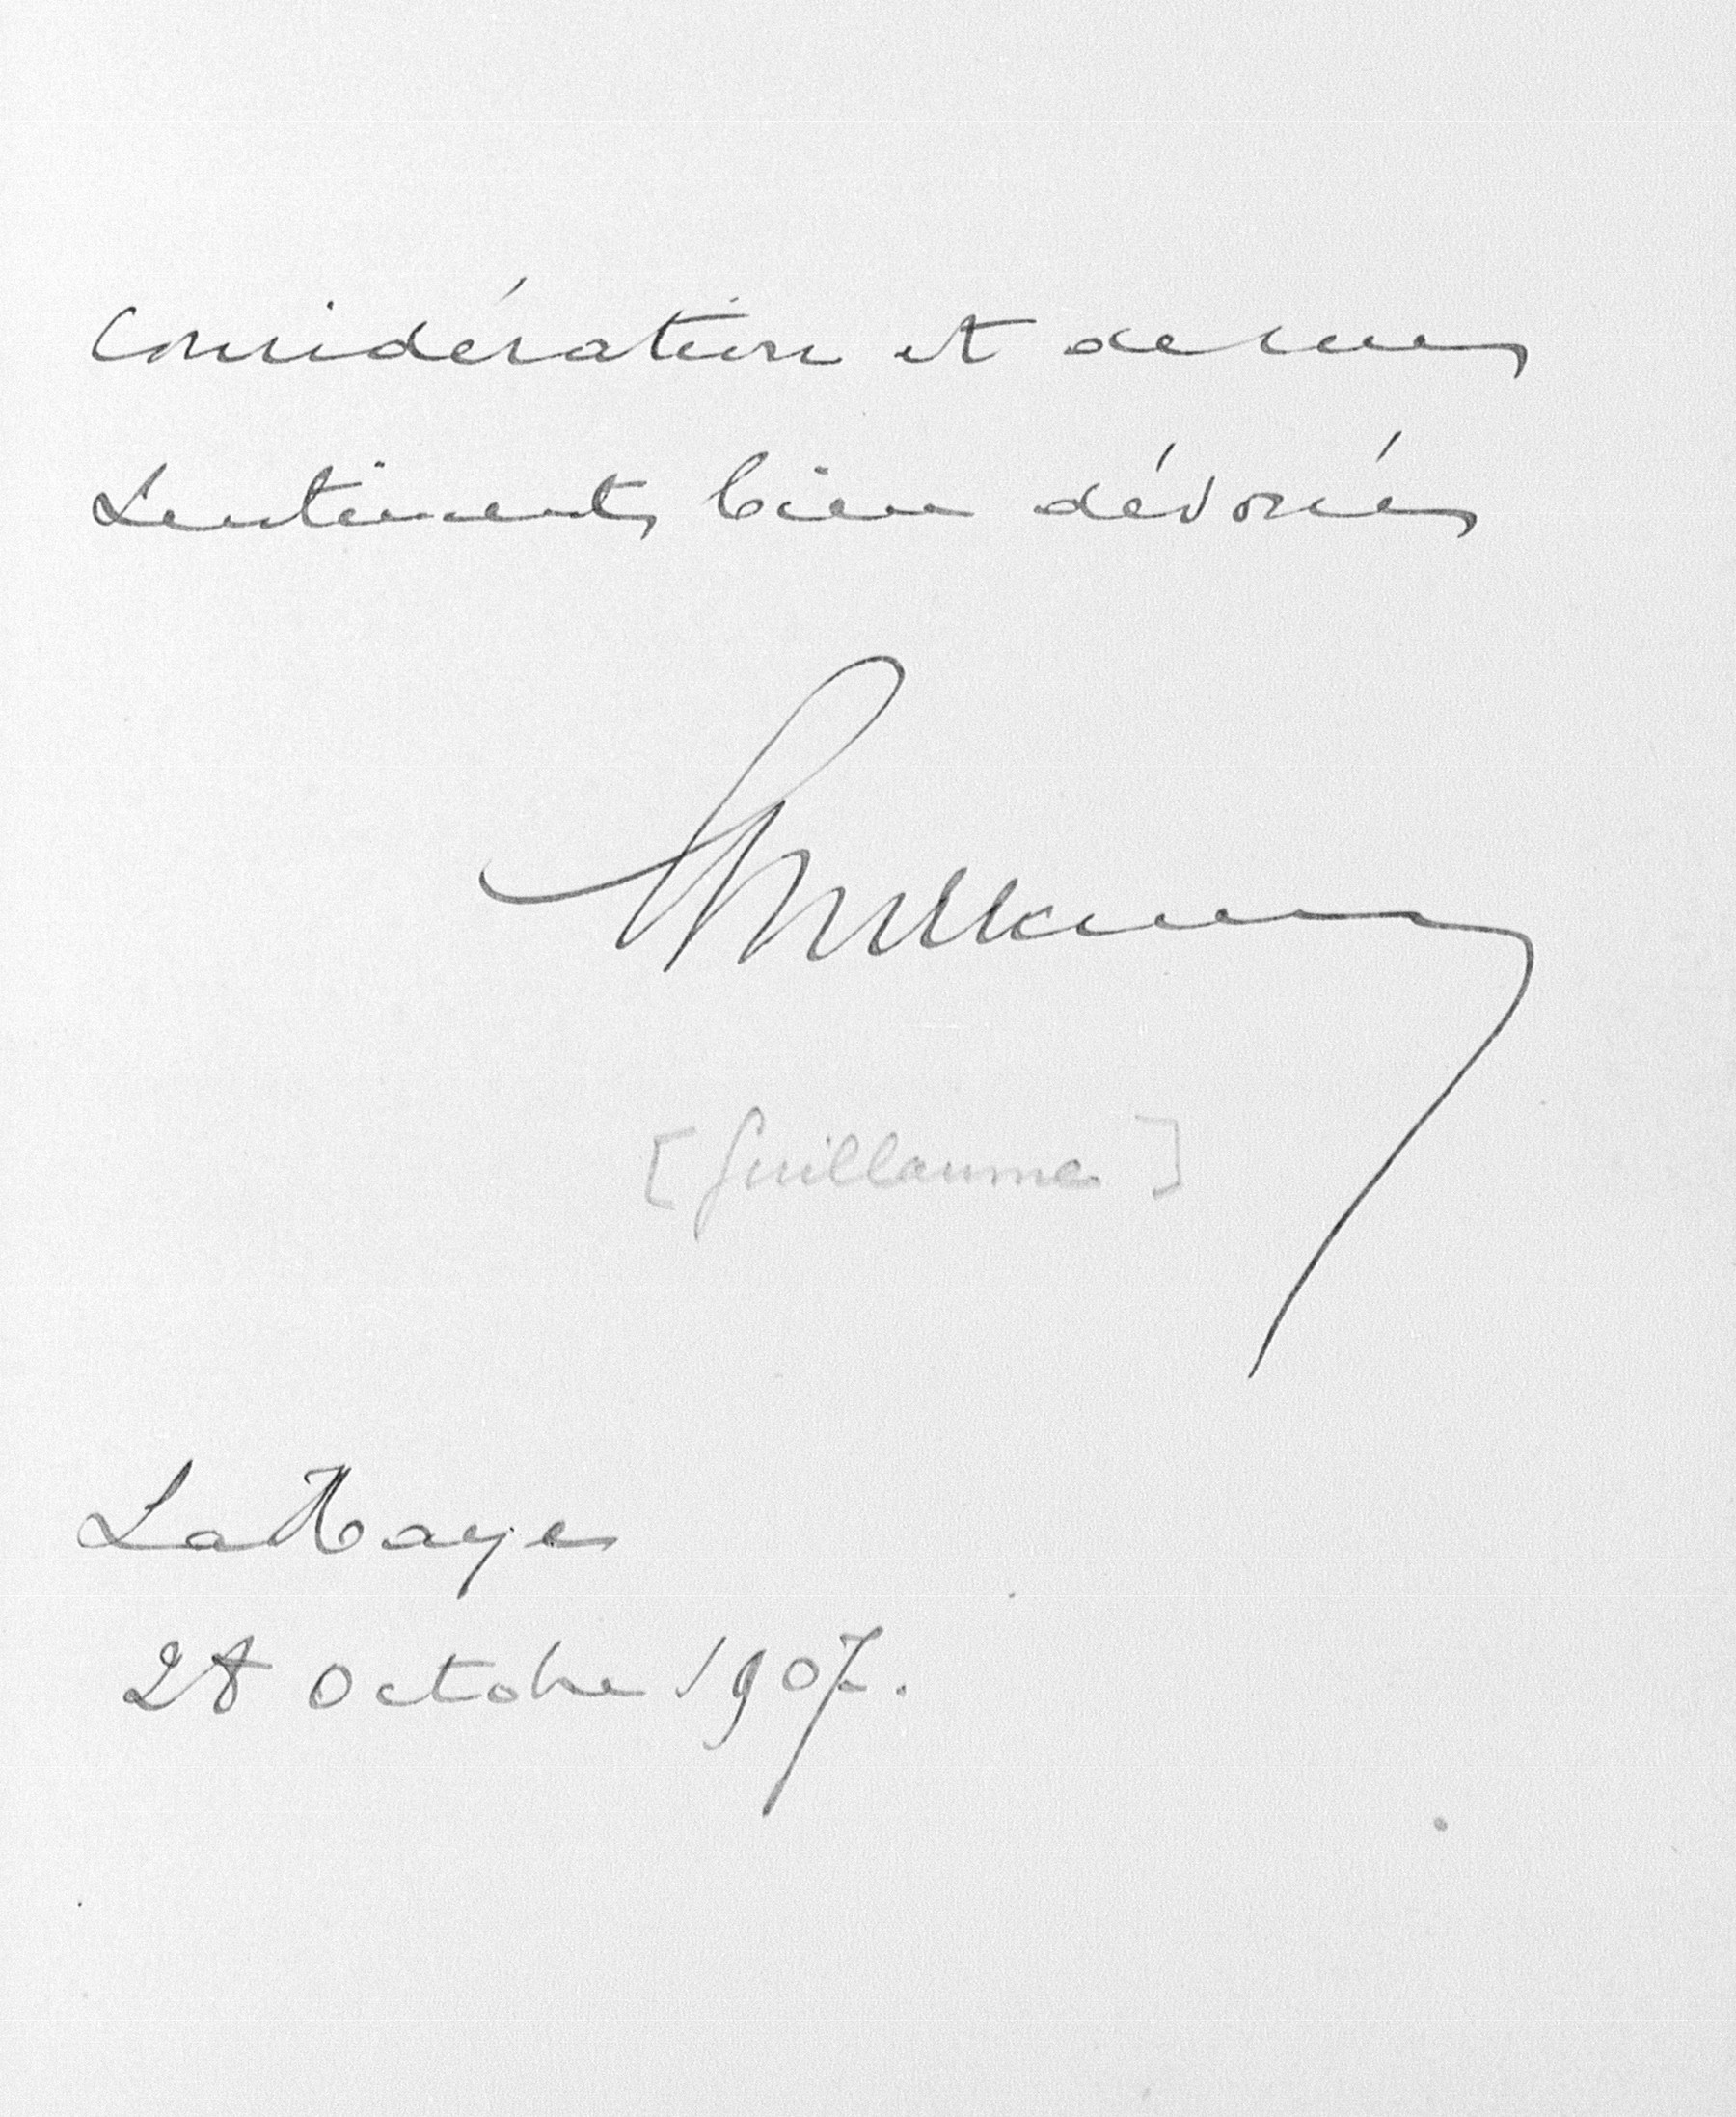 Considération et de mes
Sentiments bien dévoués
Guillaume
[Guillaume]
La Haye
28 Octobre 1907.